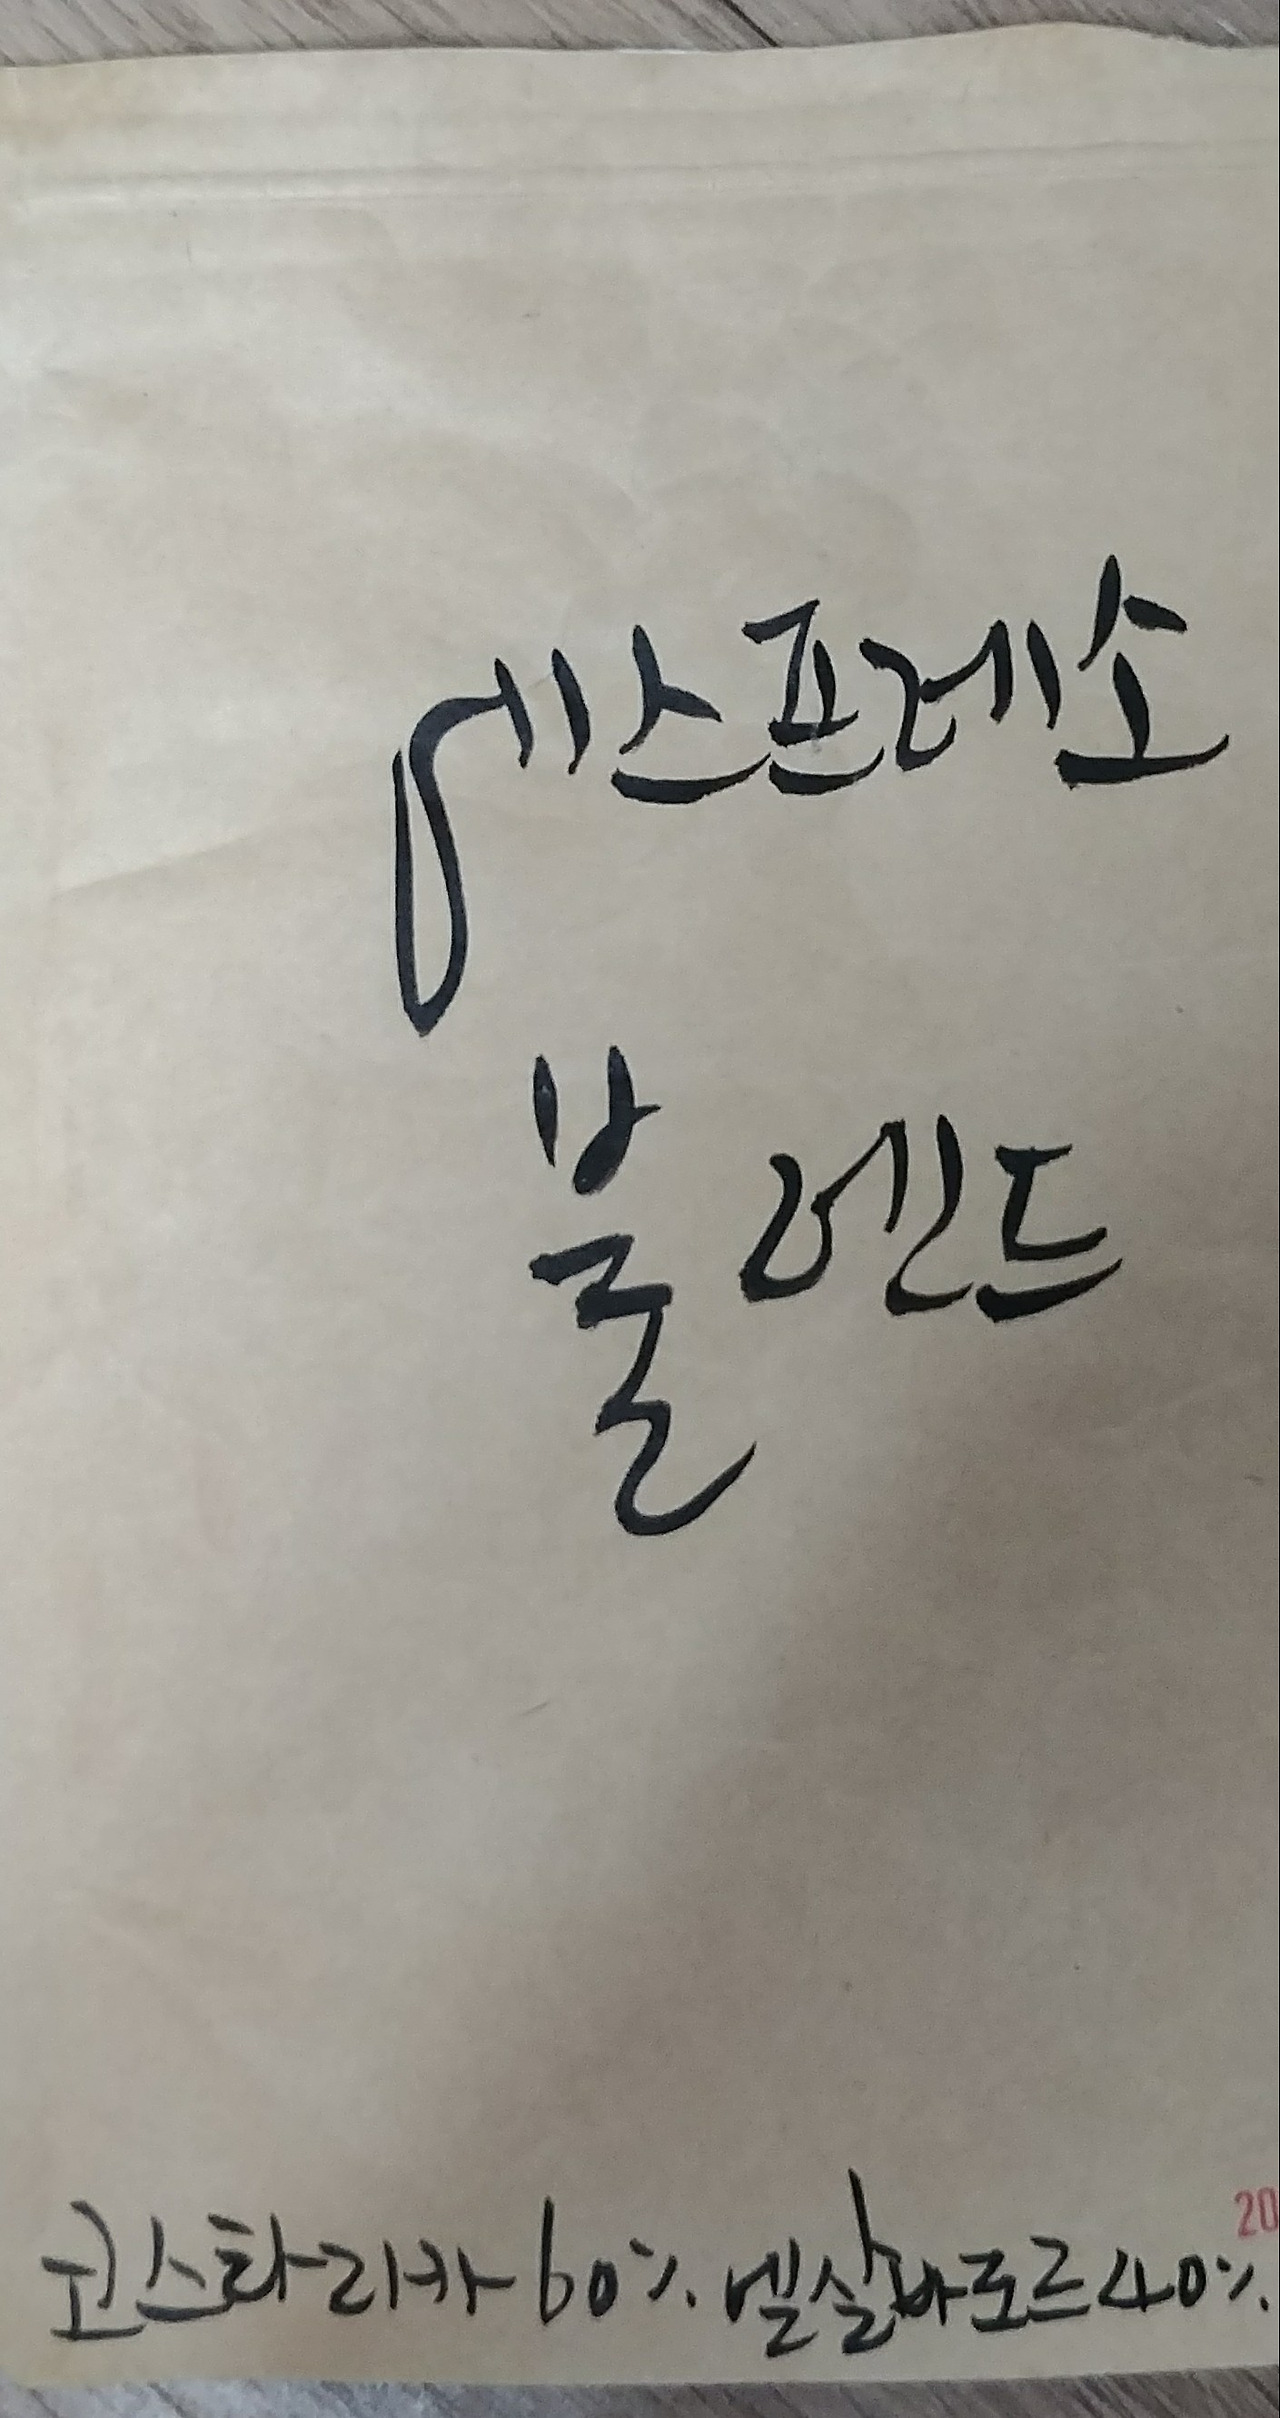 에스프레소
블렌드
코스타리카 60%. 엘살바도르 40%.
20